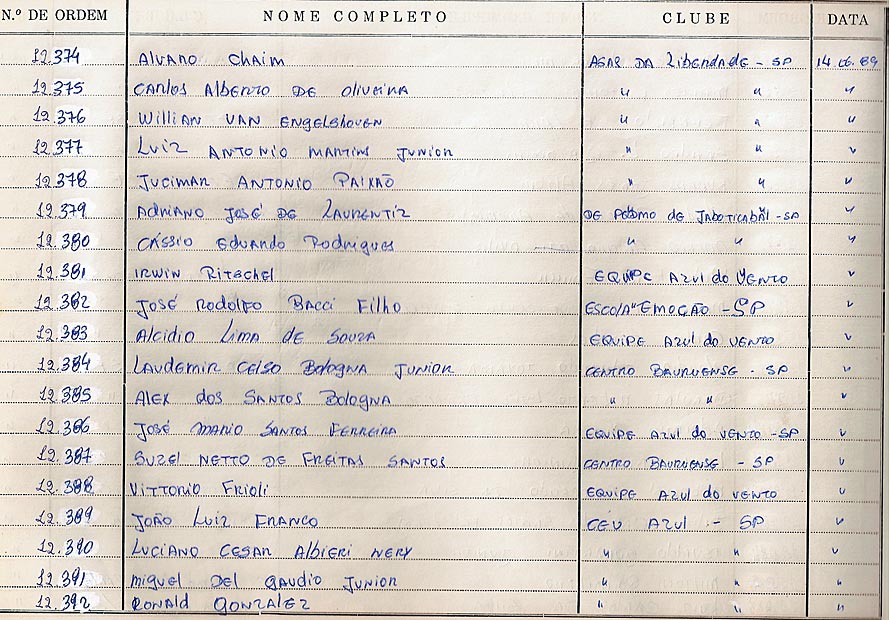 N.º DE ORDEM NOME COMPLETO CLUBE DATA
12.374 Alvaro Chaim ASAS DA LIBERDADE - SP 14.06.89
12.375 CARLOS ALBERTO DE OLIVEIRA " " "
12.376 WILLIAN VAN ENGELSHOVEN " " "
12.377 LUIZ ANTONIO MARTINS JUNIOR " " "
12.378 JUCIMAR ANTONIO PAIXÃO " " "
12.379 ADRIANO JOSÉ DE LAURENTIZ DE JABOTICABAL - SP "
12.380 CÁSSIO EDUARDO RODRIGUES " " "
12.381 IRWIN RITSCHEL EQUIPE AZUL DO VENTO "
12.382 JOSÉ RODOLFO BACCI FILHO ESCOLA "EMOÇÃO - SP "
12.383 ALCIDIO LIMA DE SOUZA EQUIPE AZUL DO VENTO "
12.384 LAUDEMIR CELSO BOLOGNA JUNIOR CENTRO BAURUENSE - SP "
12.385 ALEX DOS SANTOS BOLOGNA " " "
12.386 JOSÉ MARIO SANTOS FERREIRA EQUIPE AZUL DO VENTO - SP "
12.387 SUZEL NETTO DE FREITAS SANTOS CENTRO BAURUENSE - SP "
12.388 VITTORIO FRIOLI EQUIPE AZUL DO VENTO "
12.389 JOÃO LUIZ FRANCO CÉU AZUL - SP "
12.390 LUCIANO CESAR ALBIERI NERY " " "
12.391 MIGUEL DEL GAUDIO JUNIOR " " "
12.392 RONALD GONZALEZ " " "